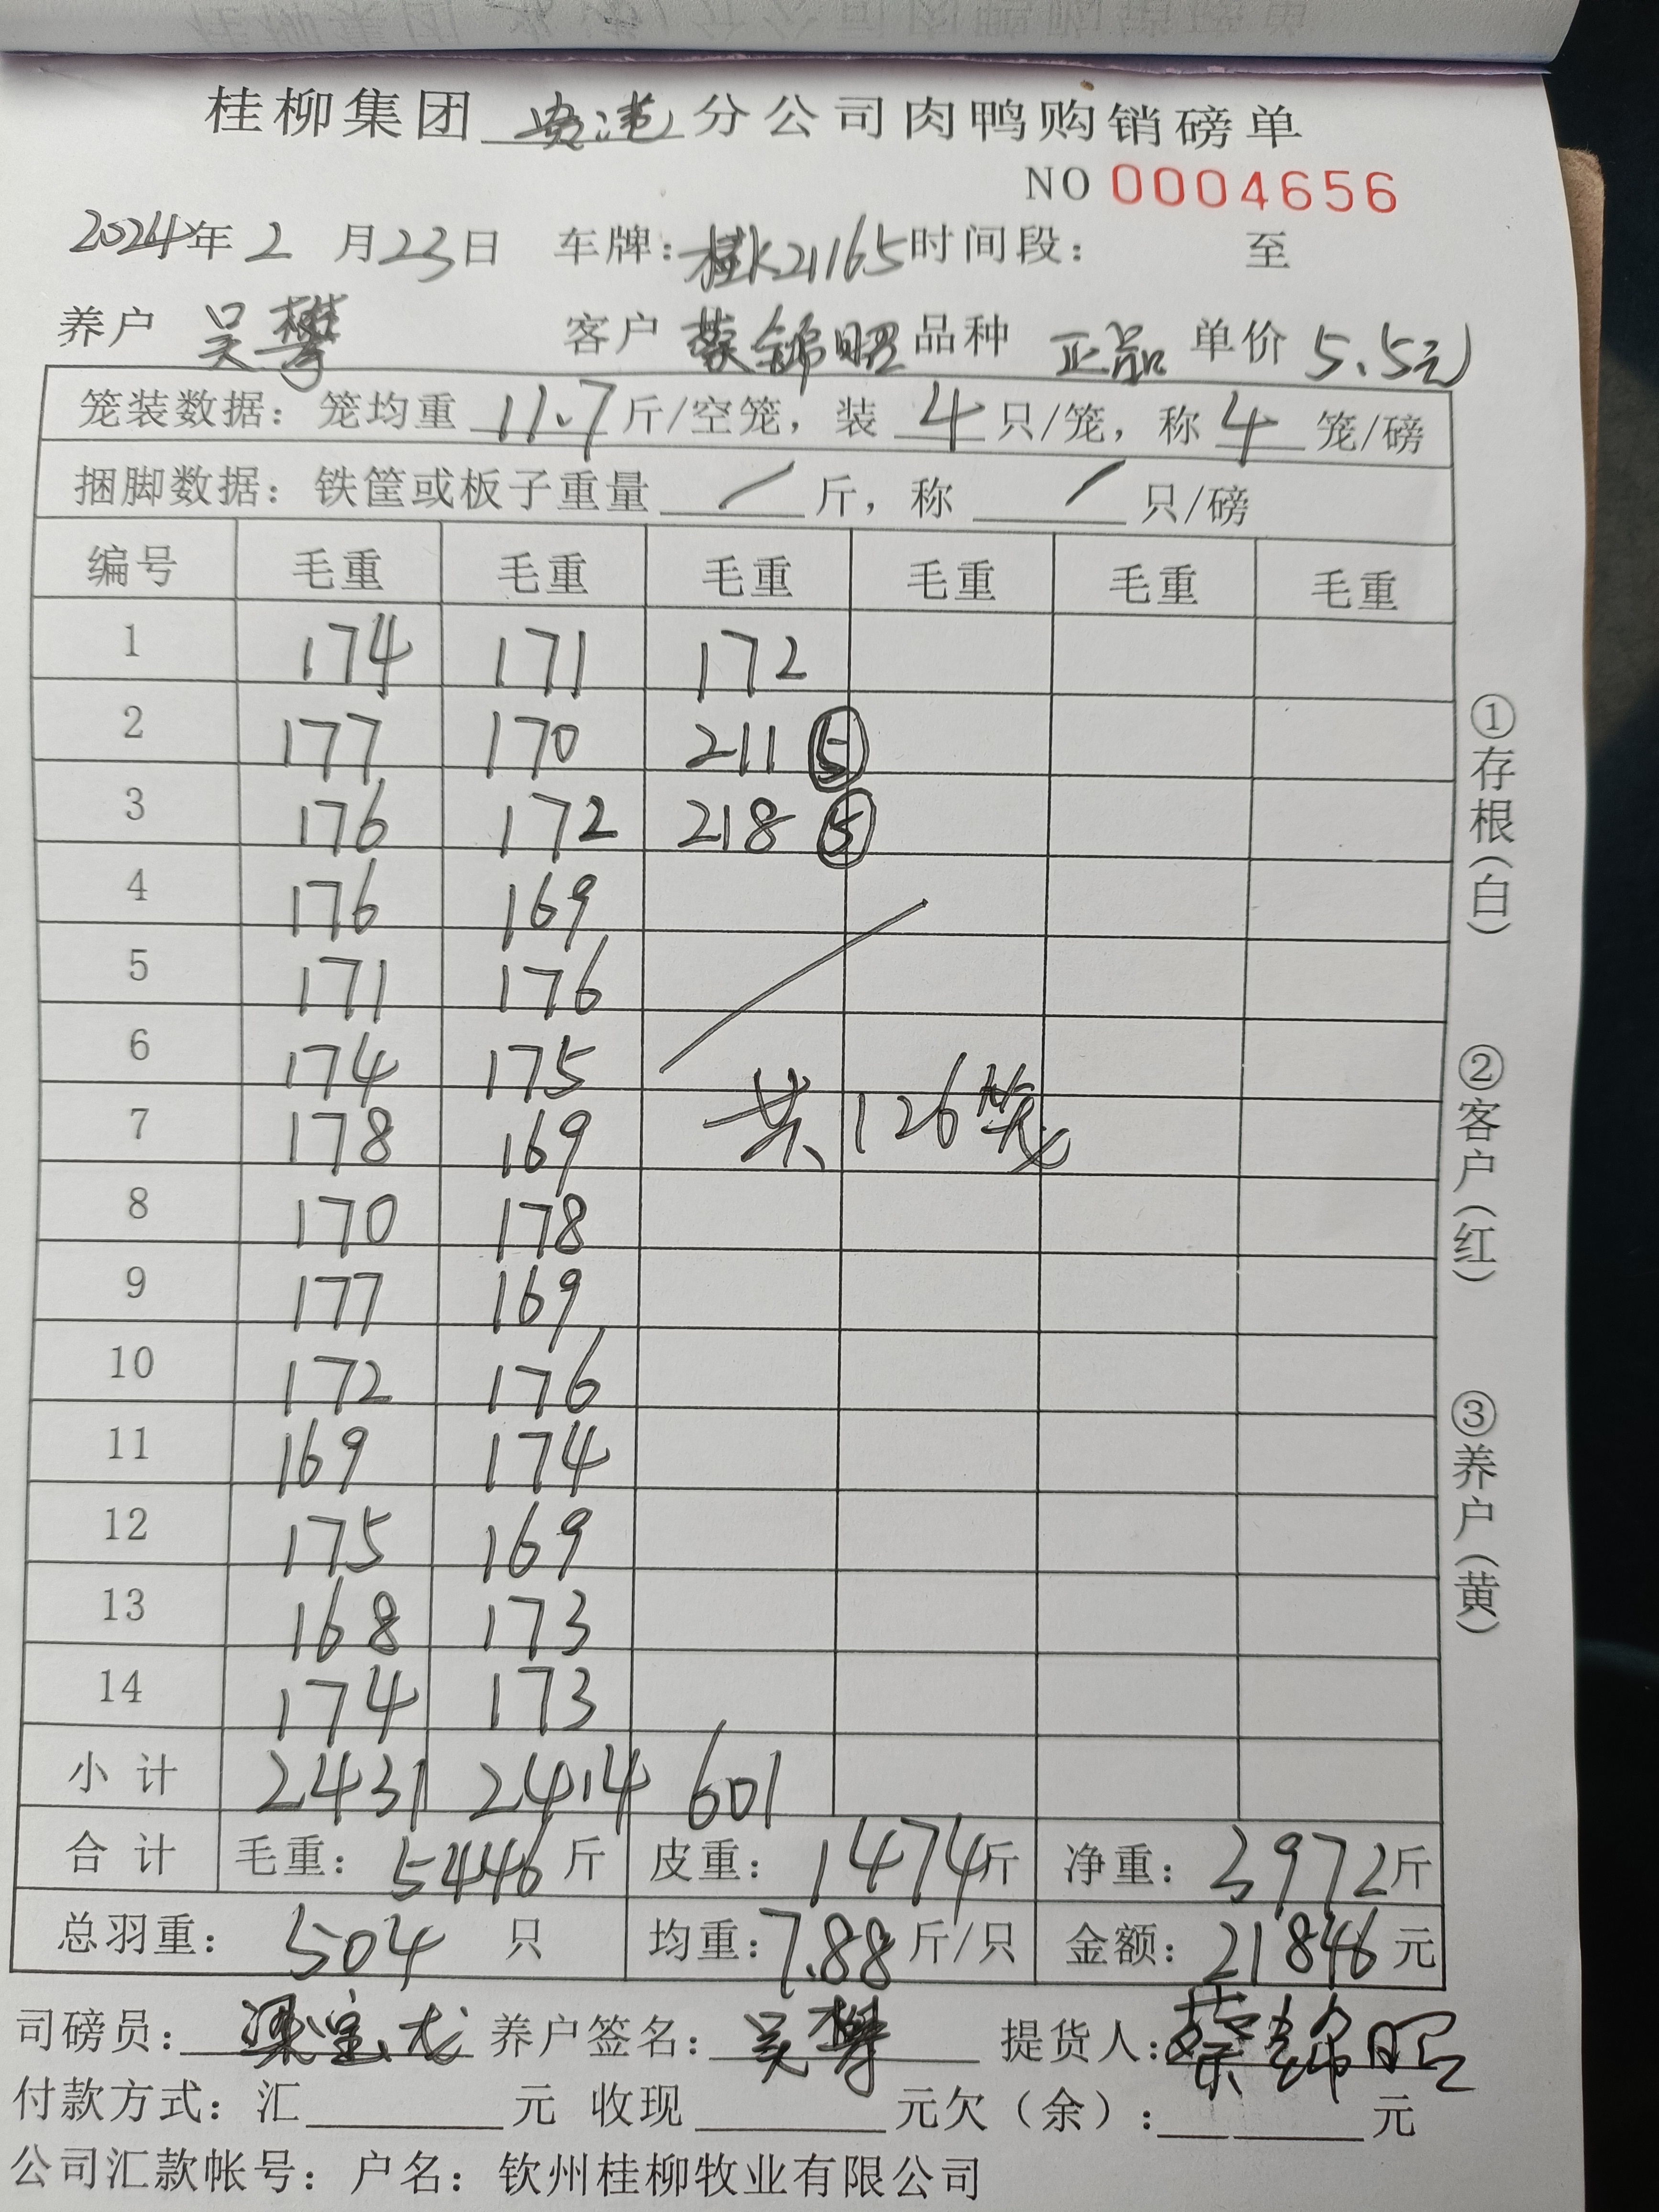 桂柳集团 贵港 分公司肉鸭购销磅单
NO 0004656
2024年 2 月 23 日 车牌：桂K21165 时间段： 至
养户 吴攀 客户 蔡锦昭 品种 正品 单价 5.5元
笼装数据：笼均重 11.7 斤/空笼，装 4 只/笼，称 4 笼/磅
捆脚数据：铁筐或板子重量 / 斤，称 / 只/磅
编号 毛重 毛重 毛重 毛重 毛重 毛重
1 174 171 172
2 177 170 211 ⑤
3 176 172 218 ⑤
4 176 169
5 171 176
6 174 175
7 178 169 共126笼
8 170 178
9 177 169
10 172 176
11 169 174
12 175 169
13 168 173
14 174 173
小计 2431 2414 601
合计 毛重：5446 斤 皮重：1474 斤 净重：3972 斤
总羽重：504 只 均重：7.88 斤/只 金额：21846 元
司磅员：梁宝龙 养户签名：吴攀 提货人：蔡锦昭
付款方式：汇 元 收现 元欠（余）： 元
公司汇款帐号：户名：钦州桂柳牧业有限公司
①存根（白） ②客户（红） ③养户（黄）